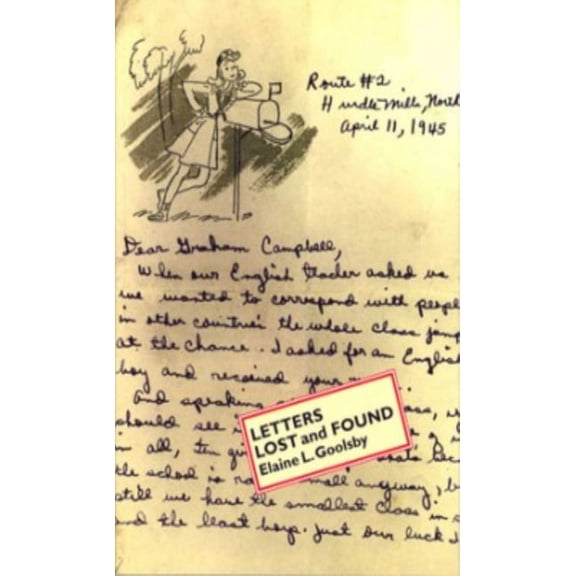 Route #2
Hurdle Mills, North
April 11, 1945
Dear Graham Campbell,
When our English teacher asked us
we wanted to correspond with people
in other countries the whole class jump
at the chance. I asked for an English
boy and received your
And speaking
should see
in all, ten
the school is small anyway, b
still we have the smallest class in s
and the least boys. Just our luck I
LETTERS
LOST and FOUND
Elaine L. Goolsby